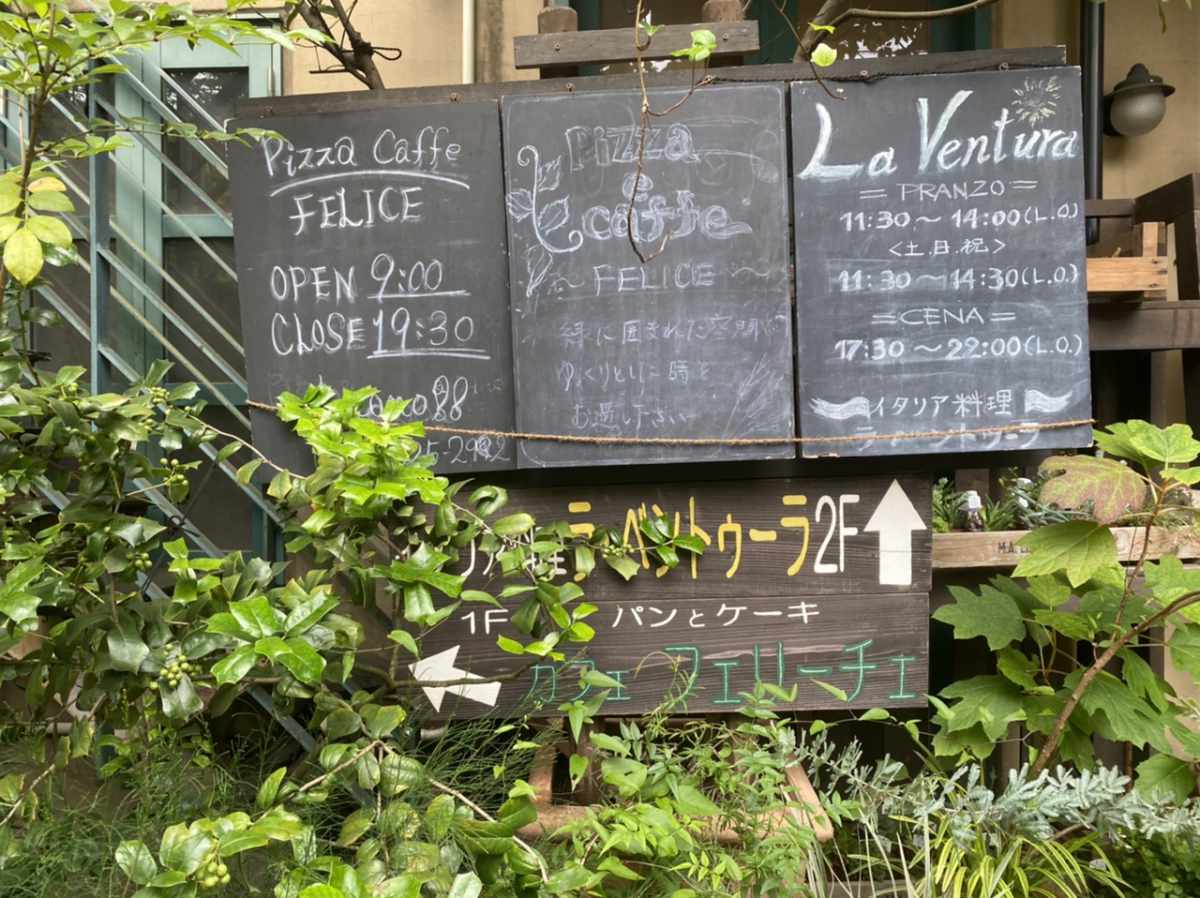 Pizza Caffe
FELICE
OPEN 9:00
CLOSE 19:30
88
5-2982
Pizza
&
caffe
〜 FELICE 〜
緑に囲まれた空間で
ゆっくりとした時を
お過し下さい
since
La Ventura
= PRANZO =
11:30〜14:00(L.O)
<土.日.祝>
11:30〜14:30(L.O.)
=CENA=
17:30〜22:00(L.O.)
イタリア料理
ラ・ベントゥーラ
ラ・ベントゥーラ2F
1F パンとケーキ
カフェ フェリーチェ